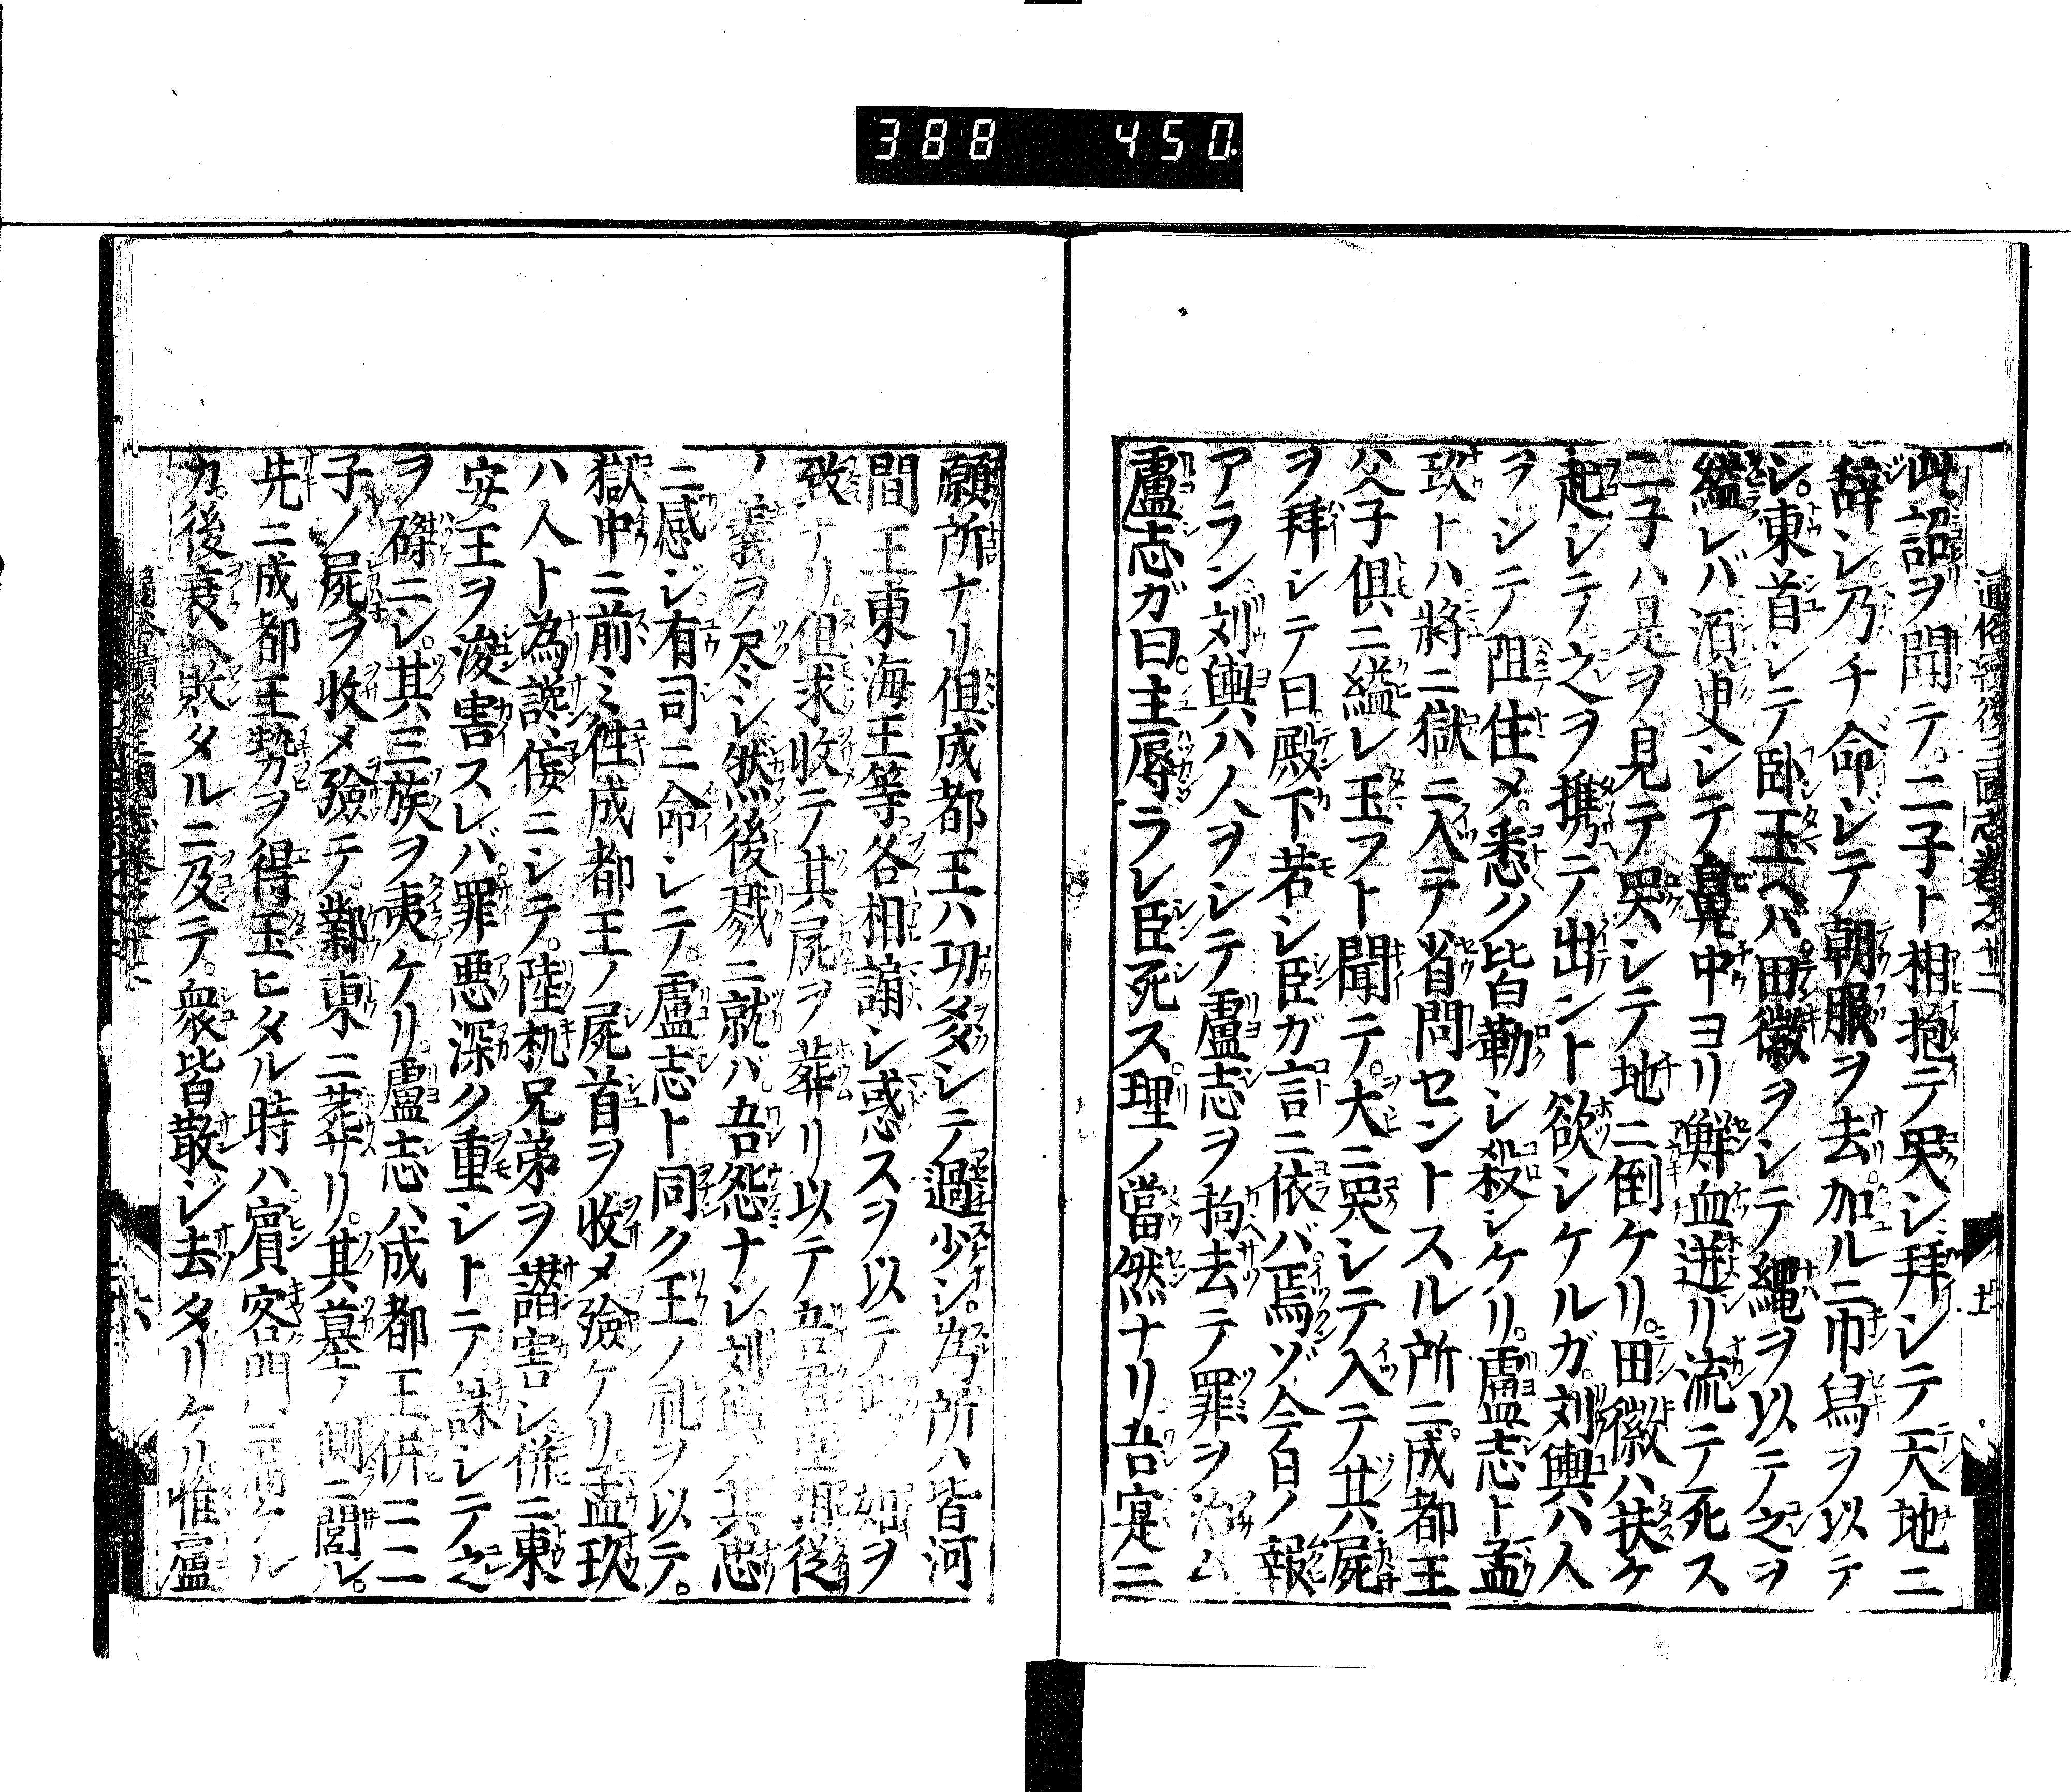 388 450
通俗續後三國志卷之十二
十一
此詔ヲ聞テ。二子ト相抱テ哭シ拜シテ天地ニ
辞シ。乃チ命ジテ朝服ヲ去リ。加ルニ巾舃ヲ以テ
シ。東首シテ卧玉ヘバ。田徽ヲシテ縄ヲ以テ之ヲ
縊レバ須臾シテ鼻中ヨリ鮮血迸リ流テ死ス
二子ハ是ヲ見テ哭シテ地ニ倒ケリ。田徽ハ扶ケ
起シテ之ヲ携テ出ント欲シケルガ。刘輿ハ人
ヲシテ阻住メ。悉ク皆勒シ殺シケリ。盧志ト孟
玖トハ將ニ獄ニ入テ省問セントスル所ニ。成都王
父子俱ニ縊レ玉フト聞テ。大ニ哭シテ入テ其屍
ヲ拜シテ曰。殿下若シ臣ガ言ニ依バ。焉ゾ今日ノ報
アラン。刘輿ハ人ヲシテ盧志ヲ拘去テ罪ヲ治ム
盧志ガ曰。主辱ラレ臣死ス。理ノ當然ナリ吾寔ニ
願所ナリ但成都王ハ功多シテ過少シ。為所ハ皆河
間王東海王等。各相誦シ惑スヲ以テ此ノ如ヲ
致ナリ。但求収テ其屍ヲ葬リ以テ吾君臣相従
ノ義ヲ尽シ然後戮ニ就バ。吾怨ナシ。刘輿ハ其忠
ニ感ジ。有司ニ命シテ。盧志ト同ク王ノ礼ヲ以テ。
獄中ニ前ミ徃成都王ノ屍首ヲ収メ殮ケリ。孟玖
ハ人ト為讒侫ニシテ。陸机兄弟ヲ譛害シ併ニ東
安王ヲ浚害スレバ。罪悪深ク重シトテ。誅シテ之
ヲ磔ニシ。其三族ヲ夷ケリ。盧志ハ成都王併ニ二
子ノ屍ヲ收メ殮テ。鄴東ニ葬リ。其墓ノ側ニ閣ル。
先ニ成都王勢ヲ得玉ヒタル時ハ賓客門ニ満ケル
カ。後衰ヘ敗タルニ及テ。衆皆散ジ去タリケリ。惟盧